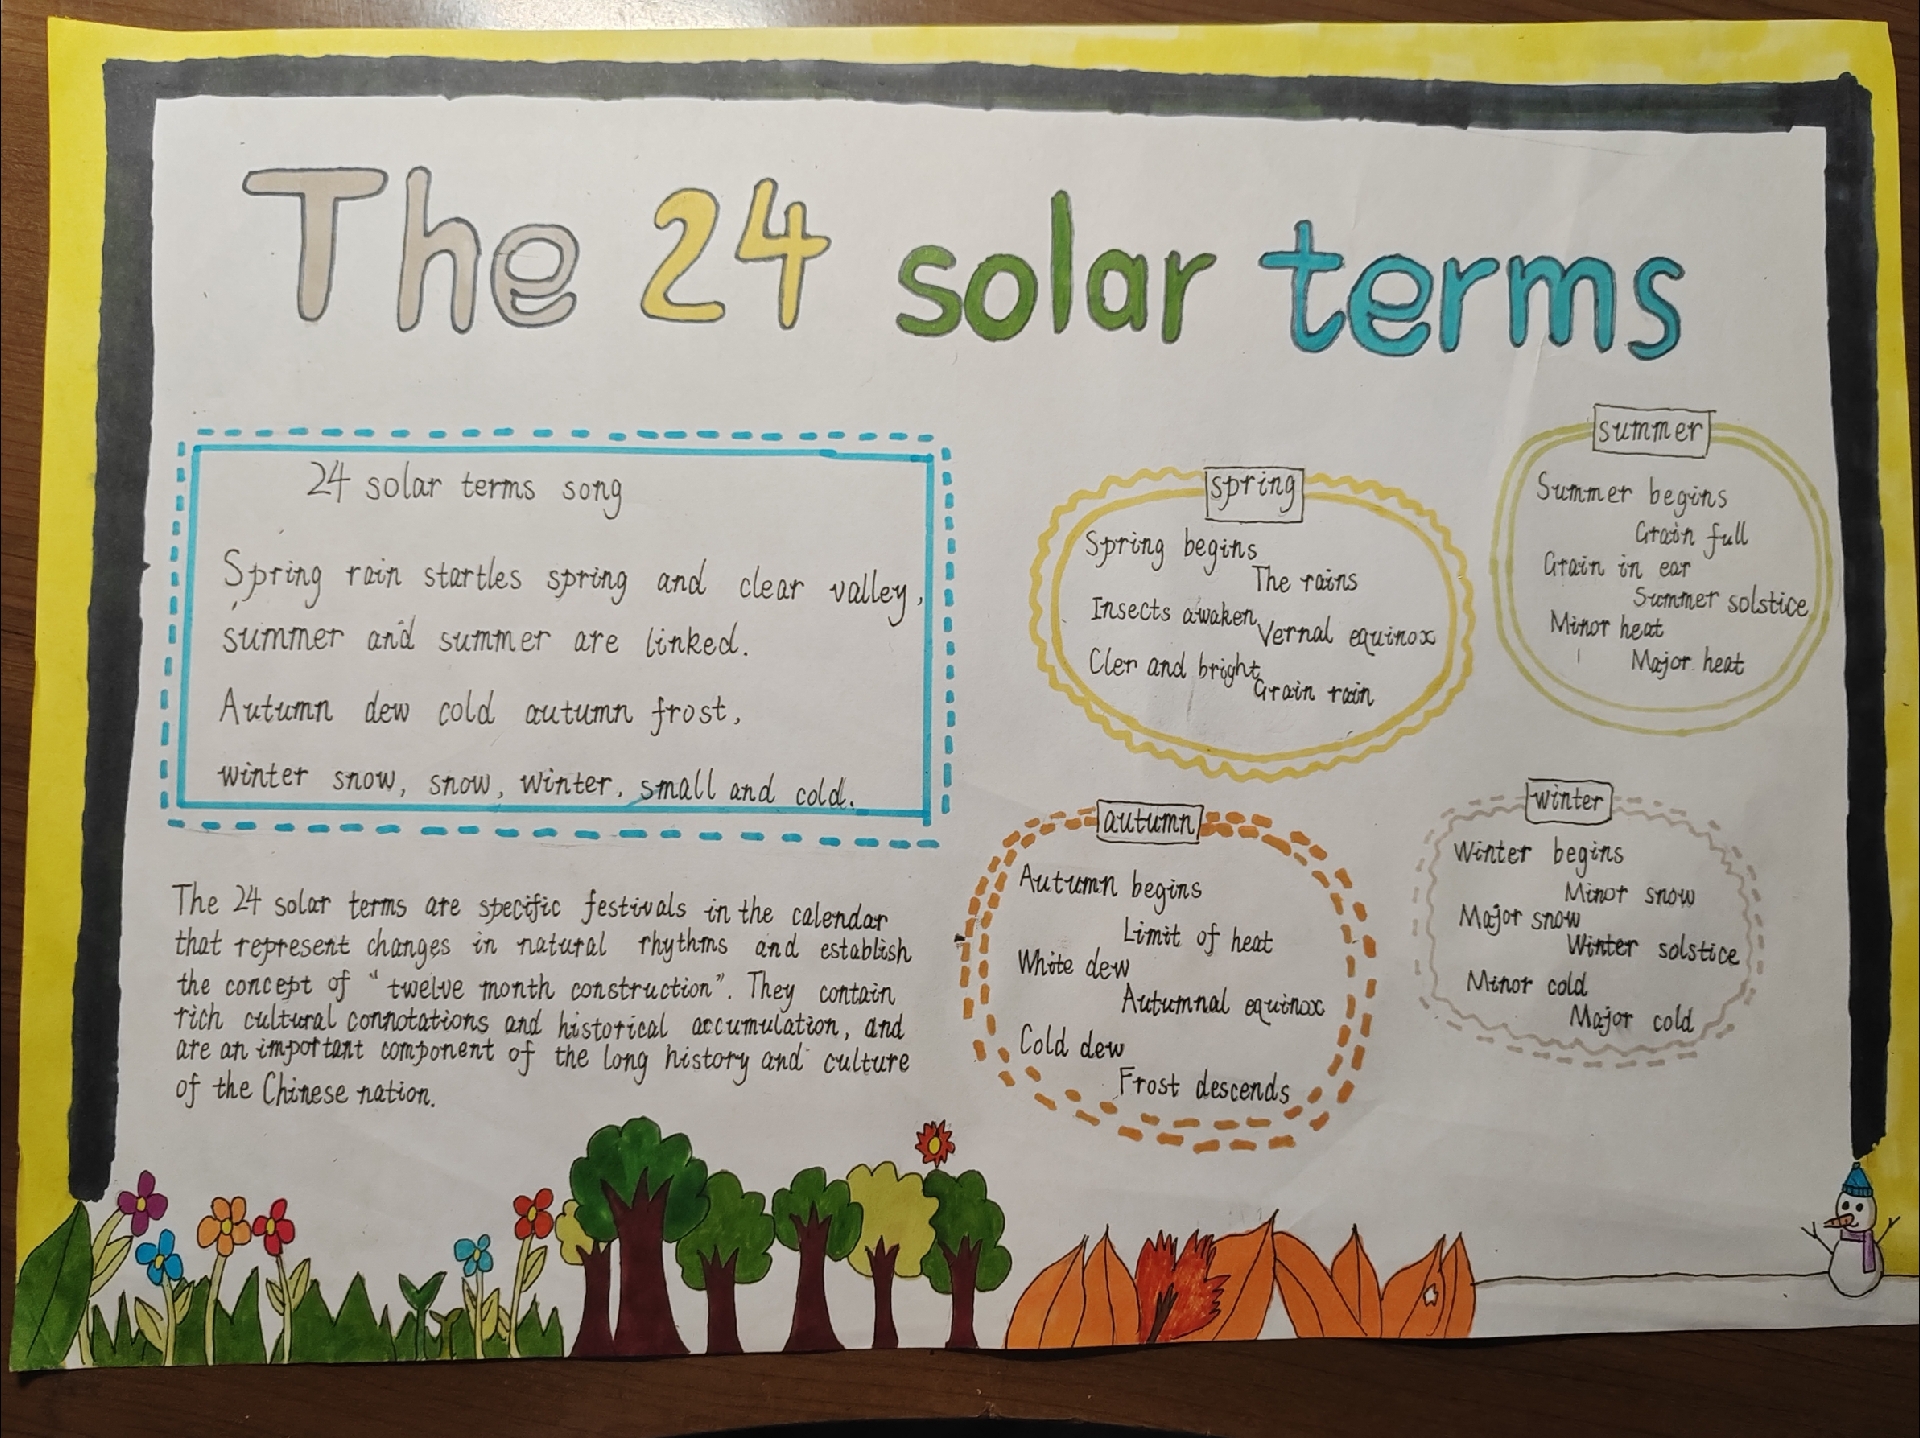 The 24 solar terms
24 solar terms song
Spring rain startles spring and clear valley,
summer and summer are linked.
Autumn dew cold autumn frost,
winter snow, snow, winter, small and cold.
The 24 solar terms are specific festivals in the calendar
that represent changes in natural rhythms and establish
the concept of "twelve month construction". They contain
rich cultural connotations and historical accumulation, and
are an important component of the long history and culture
of the Chinese nation.
spring
Spring begins
The rains
Insects awaken
Vernal equinox
Cler and bright
Grain rain
summer
Summer begins
Grain full
Grain in ear
Summer solstice
Minor heat
Major heat
autumn
Autumn begins
Limit of heat
White dew
Autumnal equinox
Cold dew
Frost descends
winter
Winter begins
Minor snow
Major snow
Winter solstice
Minor cold
Major cold